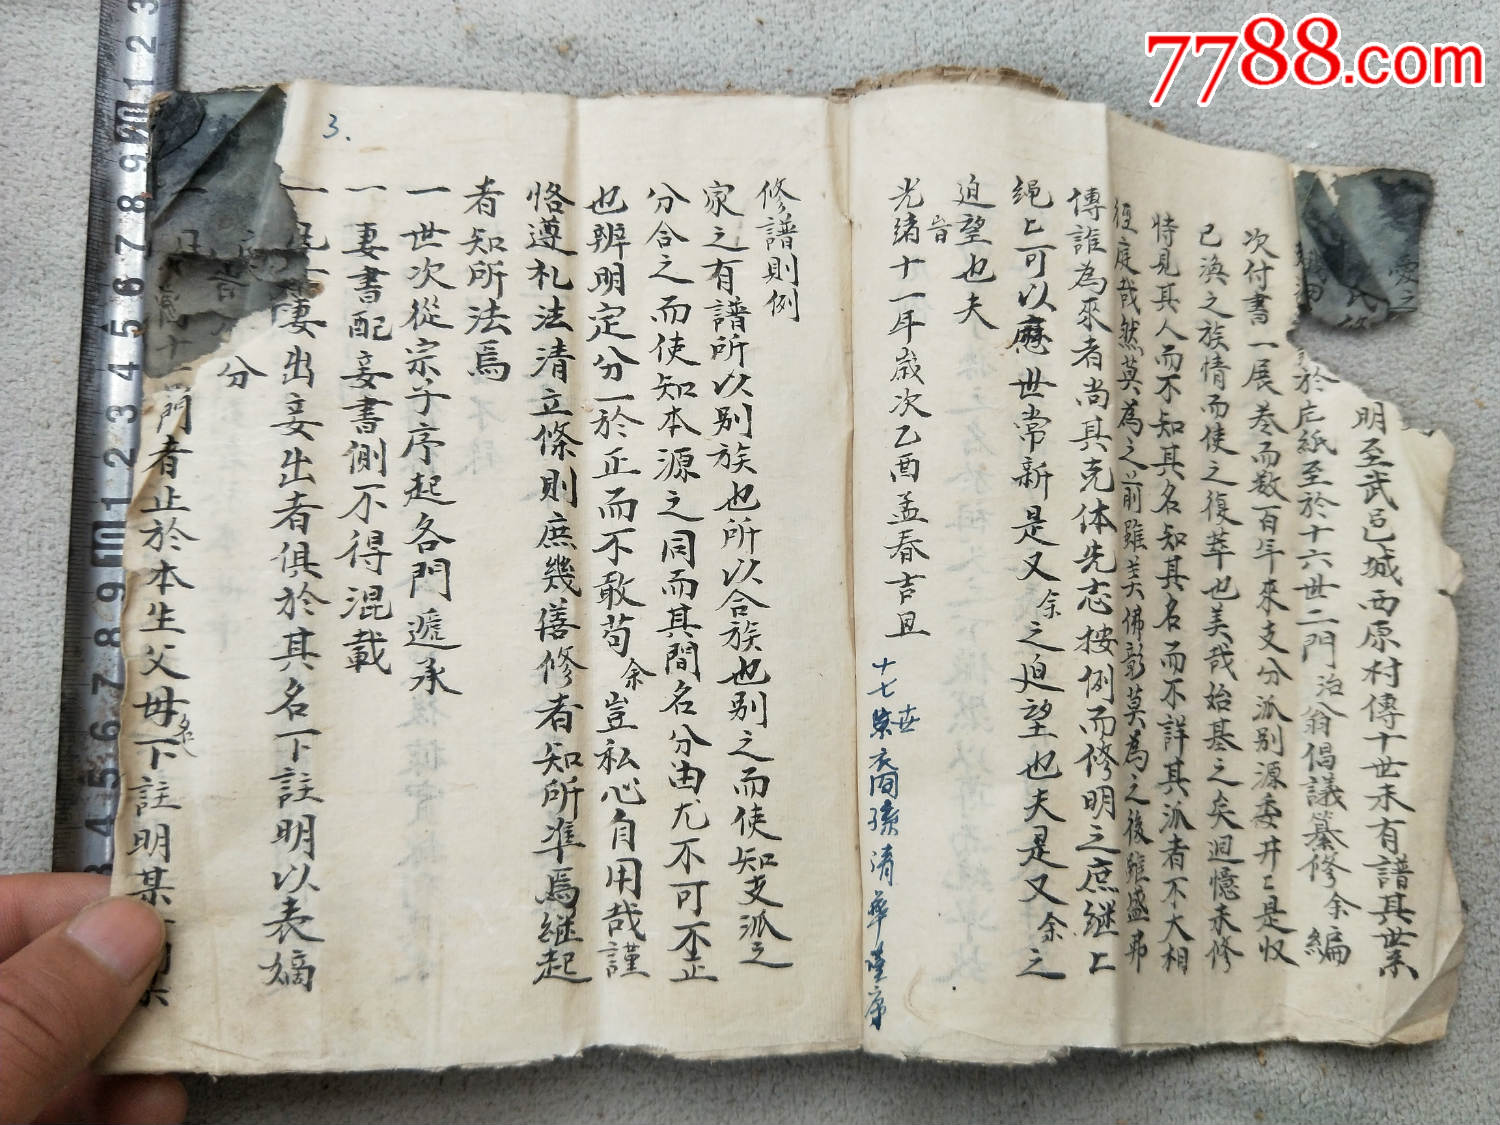 7788.com
明至武邑城西原村傳十世未有譜其世系
於片紙至於十六世二門治翁倡議纂修余編
次付書一展卷而数百年來支分派别源委井上是収
已渙之族情而使之復萃也美哉始基之矣迴憶未修
時見其人而不知其名知其名而不詳其派者不大相
徑庭哉然莫為之前雖美佛彰莫為之後雖盛弗
傳誰為來者尚其克体先志按例而修明之庶继上
绳上可以應世常新是又余之迫望也夫是又余之
迫望也夫
旹
光緒十一年歲次乙酉孟春吉旦
十七世 孫清華謹序
3.
修譜則例
家之有譜所以别族也所以合族也别之而使知支派之
分合之而使知本源之同而其間名分由尤不可不正
也辨明定分一於正而不敢苟余豈私心自用哉謹
恪遵礼法清立條則庶幾善修者知所準焉继起
者知所法焉
一世次從宗子序起各門遞承
一妻書配妾書側不得混載
妻出妾出者俱於其名下註明以表嫡
分
門者止於本生父母名下註明某